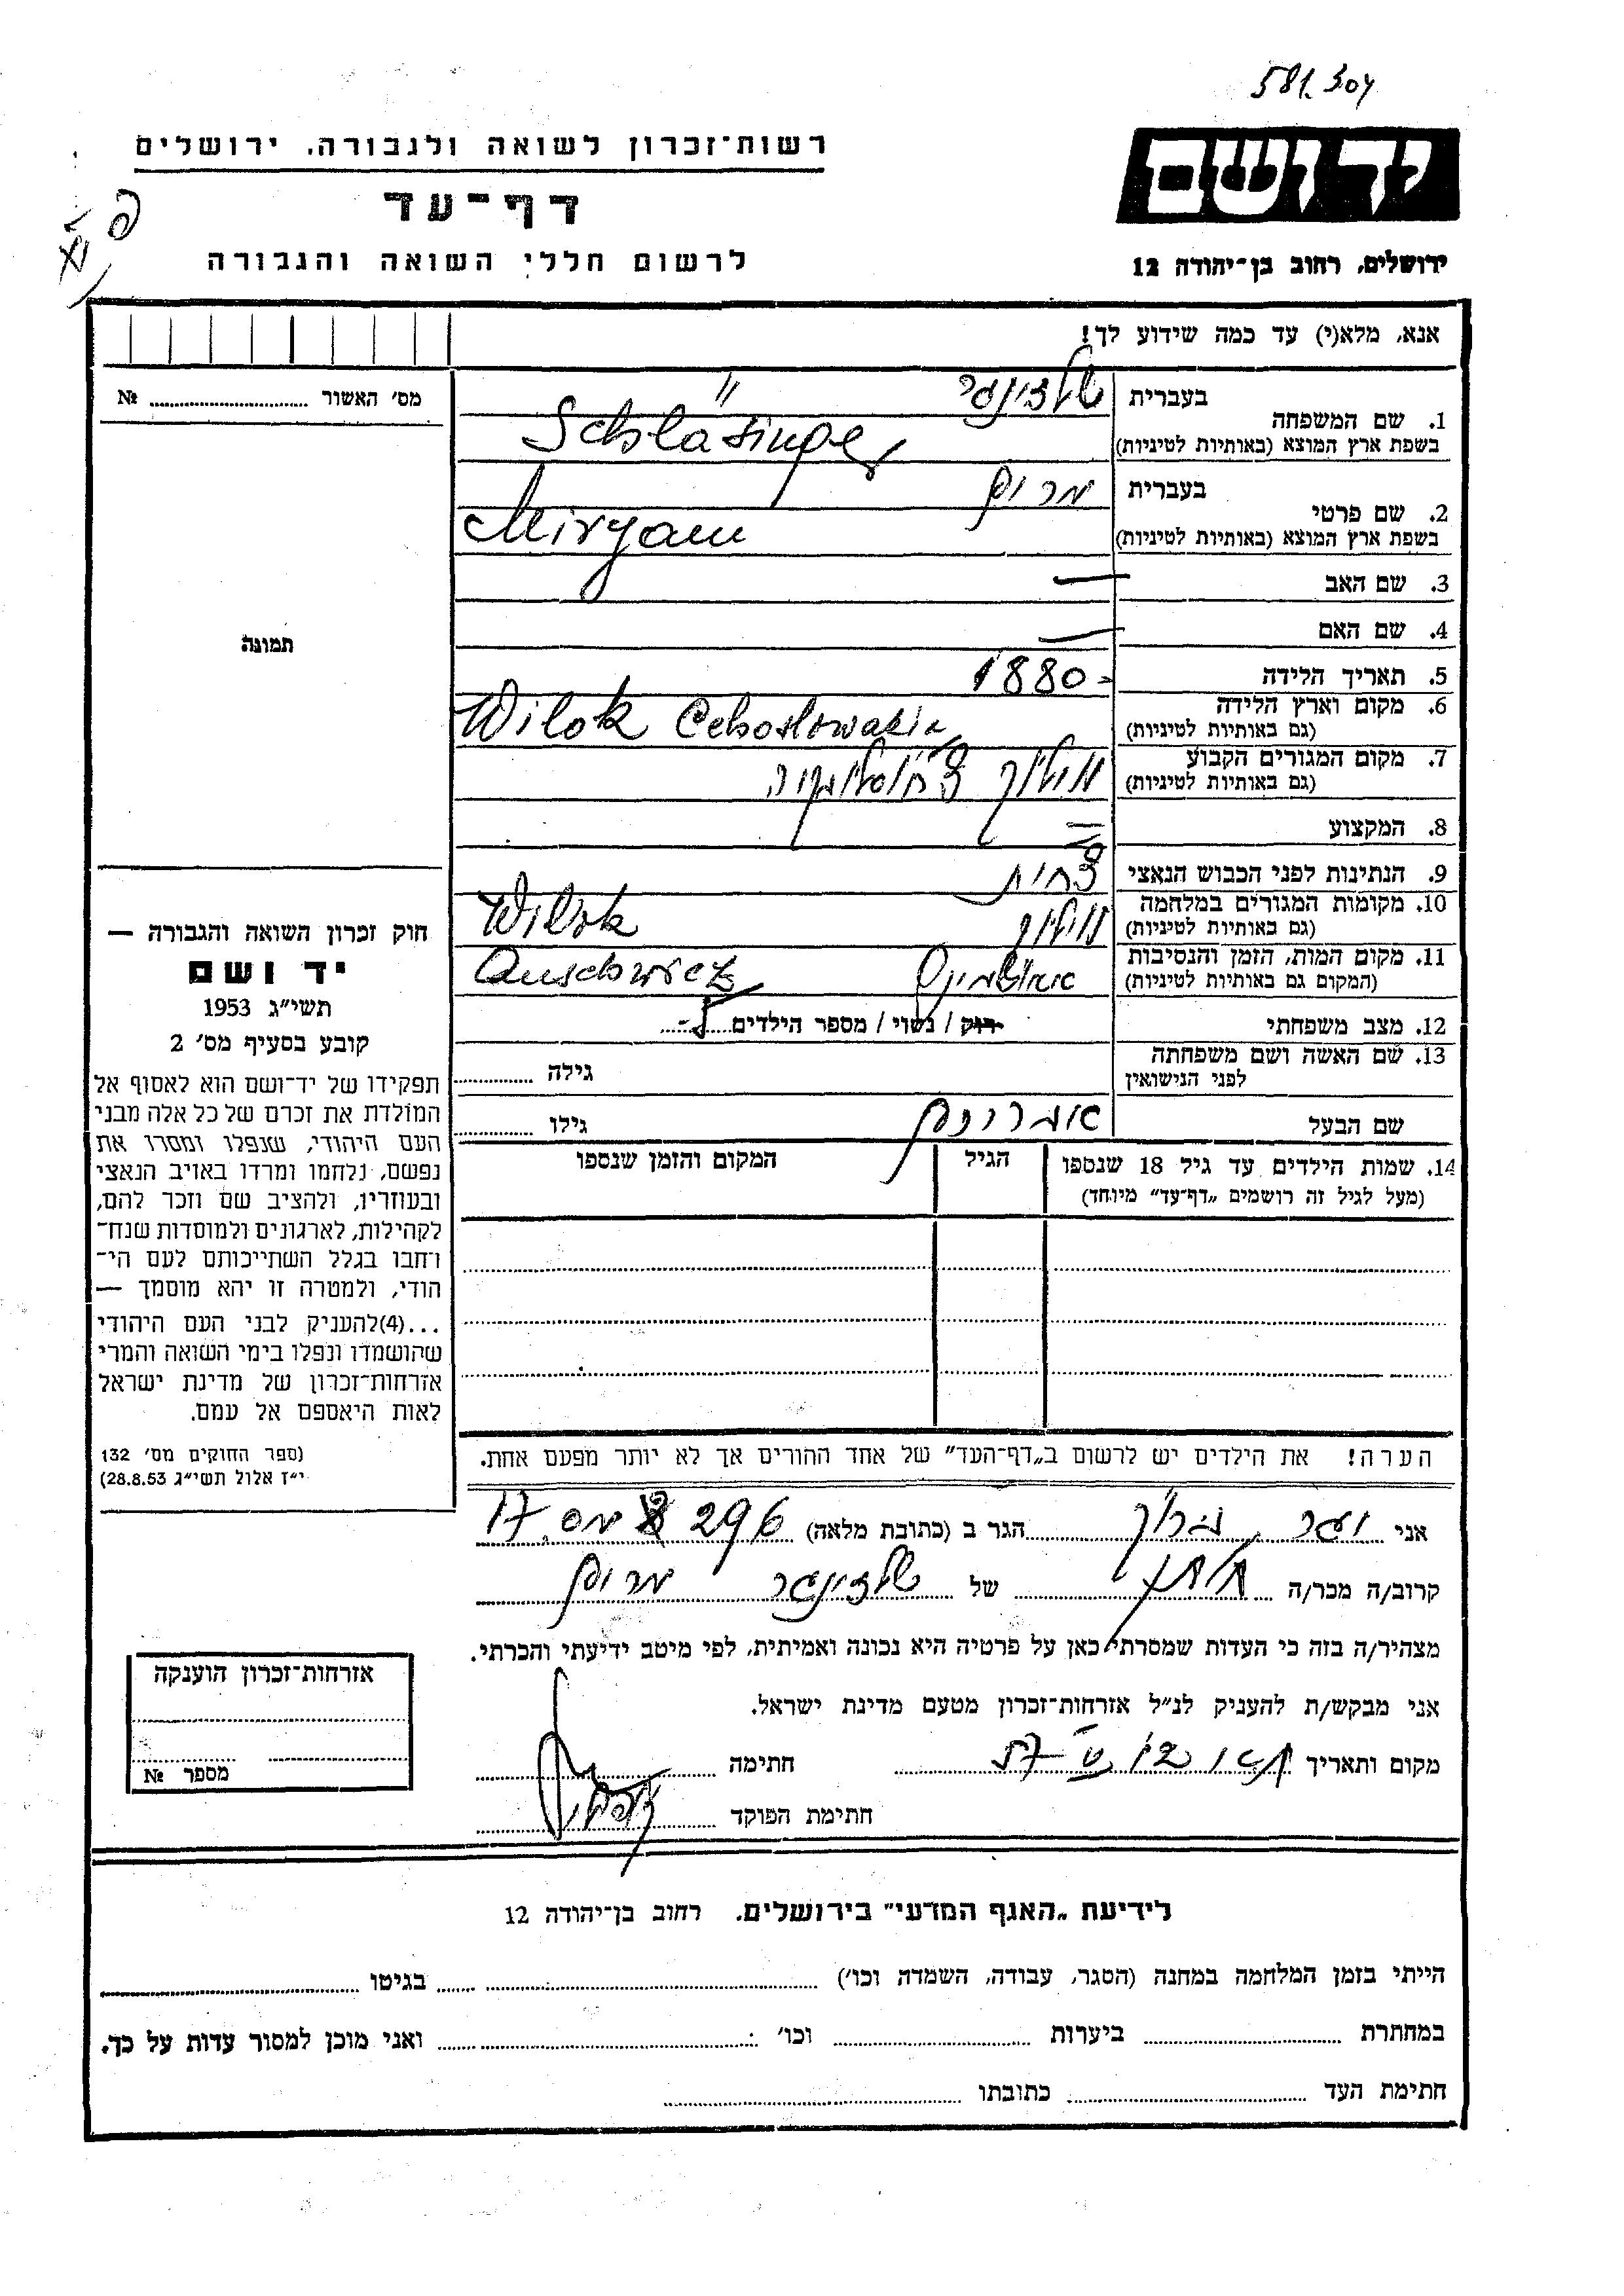 581.304
רשות־זכרון לשואה ולגבורה, ירושלים
יד ושם
דף־עד
לרשום חללי השואה והגבורה
ירושלים, רחוב בן־יהודה 12
אנא, מלא(י) עד כמה שידוע לך!
מס' האשור № ..........
1. שם המשפחה
בעברית
בשפת ארץ המוצא (באותיות לטיניות)
Schläsinger
2. שם פרטי
בעברית מרים
בשפת ארץ המוצא (באותיות לטיניות)
Miryam
3. שם האב —
4. שם האם —
תמונה
5. תאריך הלידה 1880
6. מקום וארץ הלידה
(גם באותיות לטיניות)
Wilok
7. מקום המגורים הקבוע
(גם באותיות לטיניות)
8. המקצוע —
9. הנתינות לפני הכבוש הנאצי
10. מקומות המגורים במלחמה
(גם באותיות לטיניות)
Wilok
11. מקום המות, הזמן והנסיבות
(המקום גם באותיות לטיניות)
Auschwicz
12. מצב משפחתי רוק / נשוי / מספר הילדים
13. שם האשה ושם משפחתה
לפני הנישואין
גילה ..........
שם הבעל
גילו ..........
14. שמות הילדים עד גיל 18 שנספו
(מעל לגיל זה רושמים „דף־עד" מיוחד)
הגיל
המקום והזמן שנספו
חוק זכרון השואה והגבורה —
יד ושם
תשי"ג 1953
קובע בסעיף מס' 2
תפקידו של יד־ושם הוא לאסוף אל
המולדת את זכרם של כל אלה מבני
העם היהודי, שנפלו ומסרו את
נפשם, נלחמו ומרדו באויב הנאצי
ובעוזריו, ולהציב שם וזכר להם,
לקהילות, לארגונים ולמוסדות שנח־
רחבו בגלל השתייכותם לעם הי־
הודי, ולמטרה זו יהא מוסמך —
...(4)להעניק לבני העם היהודי
שהושמדו ונפלו בימי השואה והמרי
אזרחות־זכרון של מדינת ישראל
לאות היאספם אל עמם.
(ספר החוקים מס' 132
י"ז אלול תשי"ג 28.8.53)
הערה! את הילדים יש לרשום ב„דף־העד" של אחד ההורים אך לא יותר מפעם אחת.
אני הגר ב (כתובת מלאה) 296
קרוב/ה מכר/ה חתן של שלזינגר מרים
מצהיר/ה בזה כי העדות שמסרתי כאן על פרטיה היא נכונה ואמיתית, לפי מיטב ידיעתי והכרתי.
אני מבקש/ת להעניק לנ"ל אזרחות־זכרון מטעם מדינת ישראל.
מקום ותאריך חתימה
חתימת הפוקד
אזרחות־זכרון הוענקה
מספר №
לידיעת „האגף המדעי" בירושלים, רחוב בן־יהודה 12
הייתי בזמן המלחמה במחנה (הסגר, עבודה, השמדה וכו') .......... בגיטו ..........
במחתרת .......... ביערות .......... וכו' .......... ואני מוכן למסור עדות על כך.
חתימת העד .......... כתובתו ..........